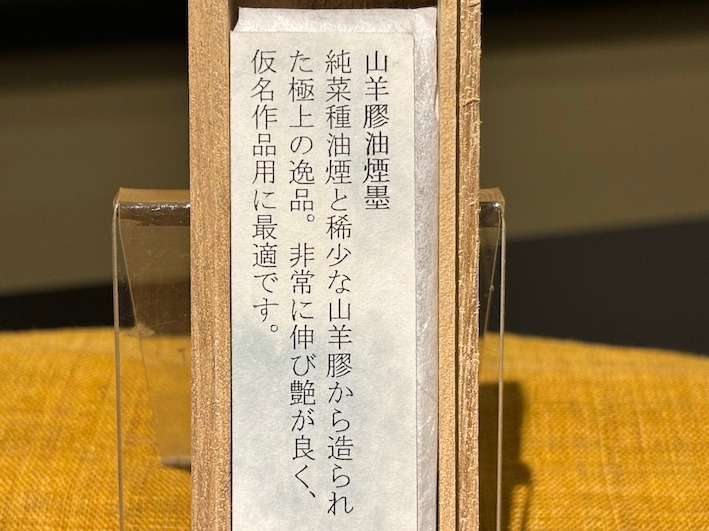 山羊膠油煙墨
純菜種油煙と稀少な山羊膠から造られ
た極上の逸品。非常に伸び艶が良く、
仮名作品用に最適です。